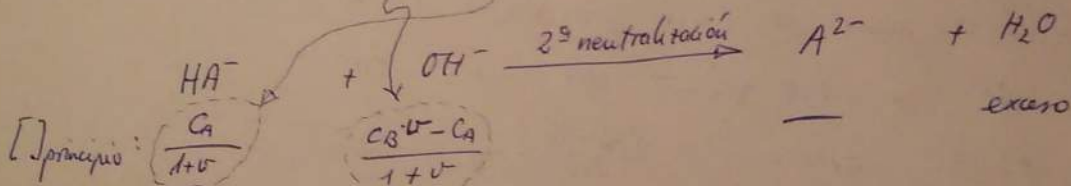 HA⁻ + OH⁻ 2ª neutralización A²⁻ + H₂O
[ ]principio: C_A/(1+v) (C_B·v − C_A)/(1+v) — exceso